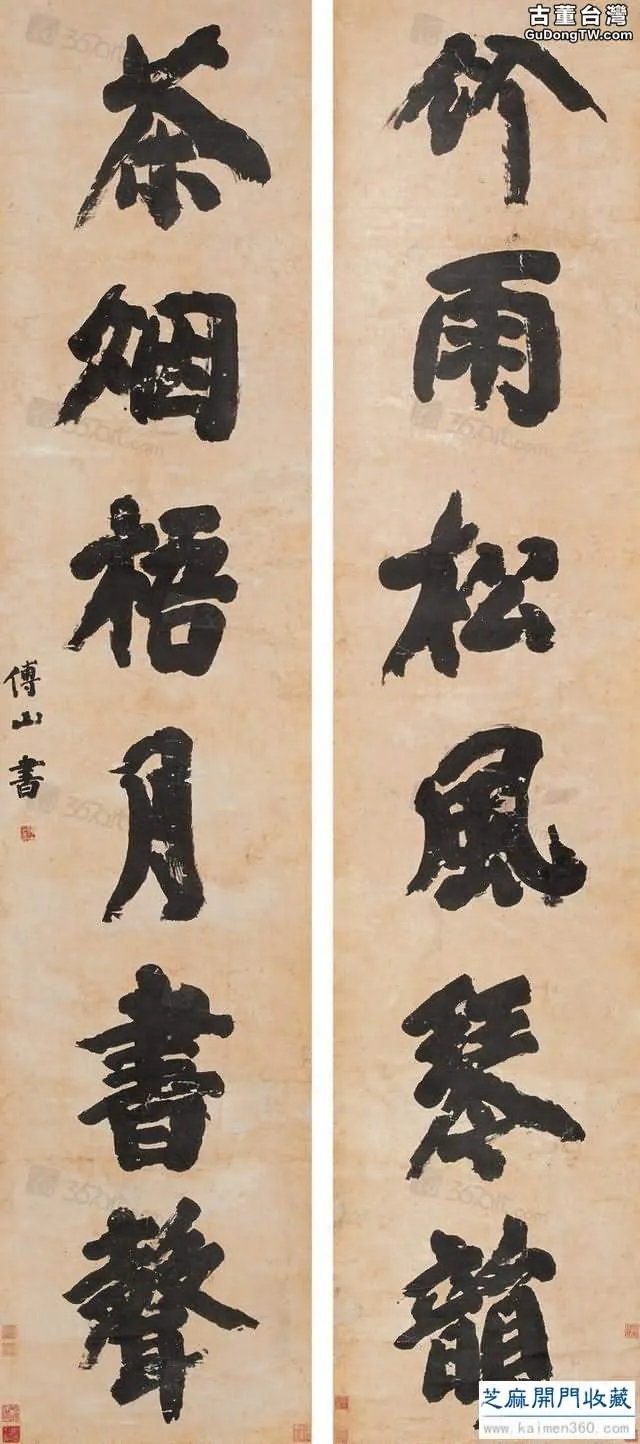 古董台灣
GuDongTW.com
竹雨松風琴韻
茶烟梧月書聲
傅山書
芝麻開門收藏
www.kaimen360.com